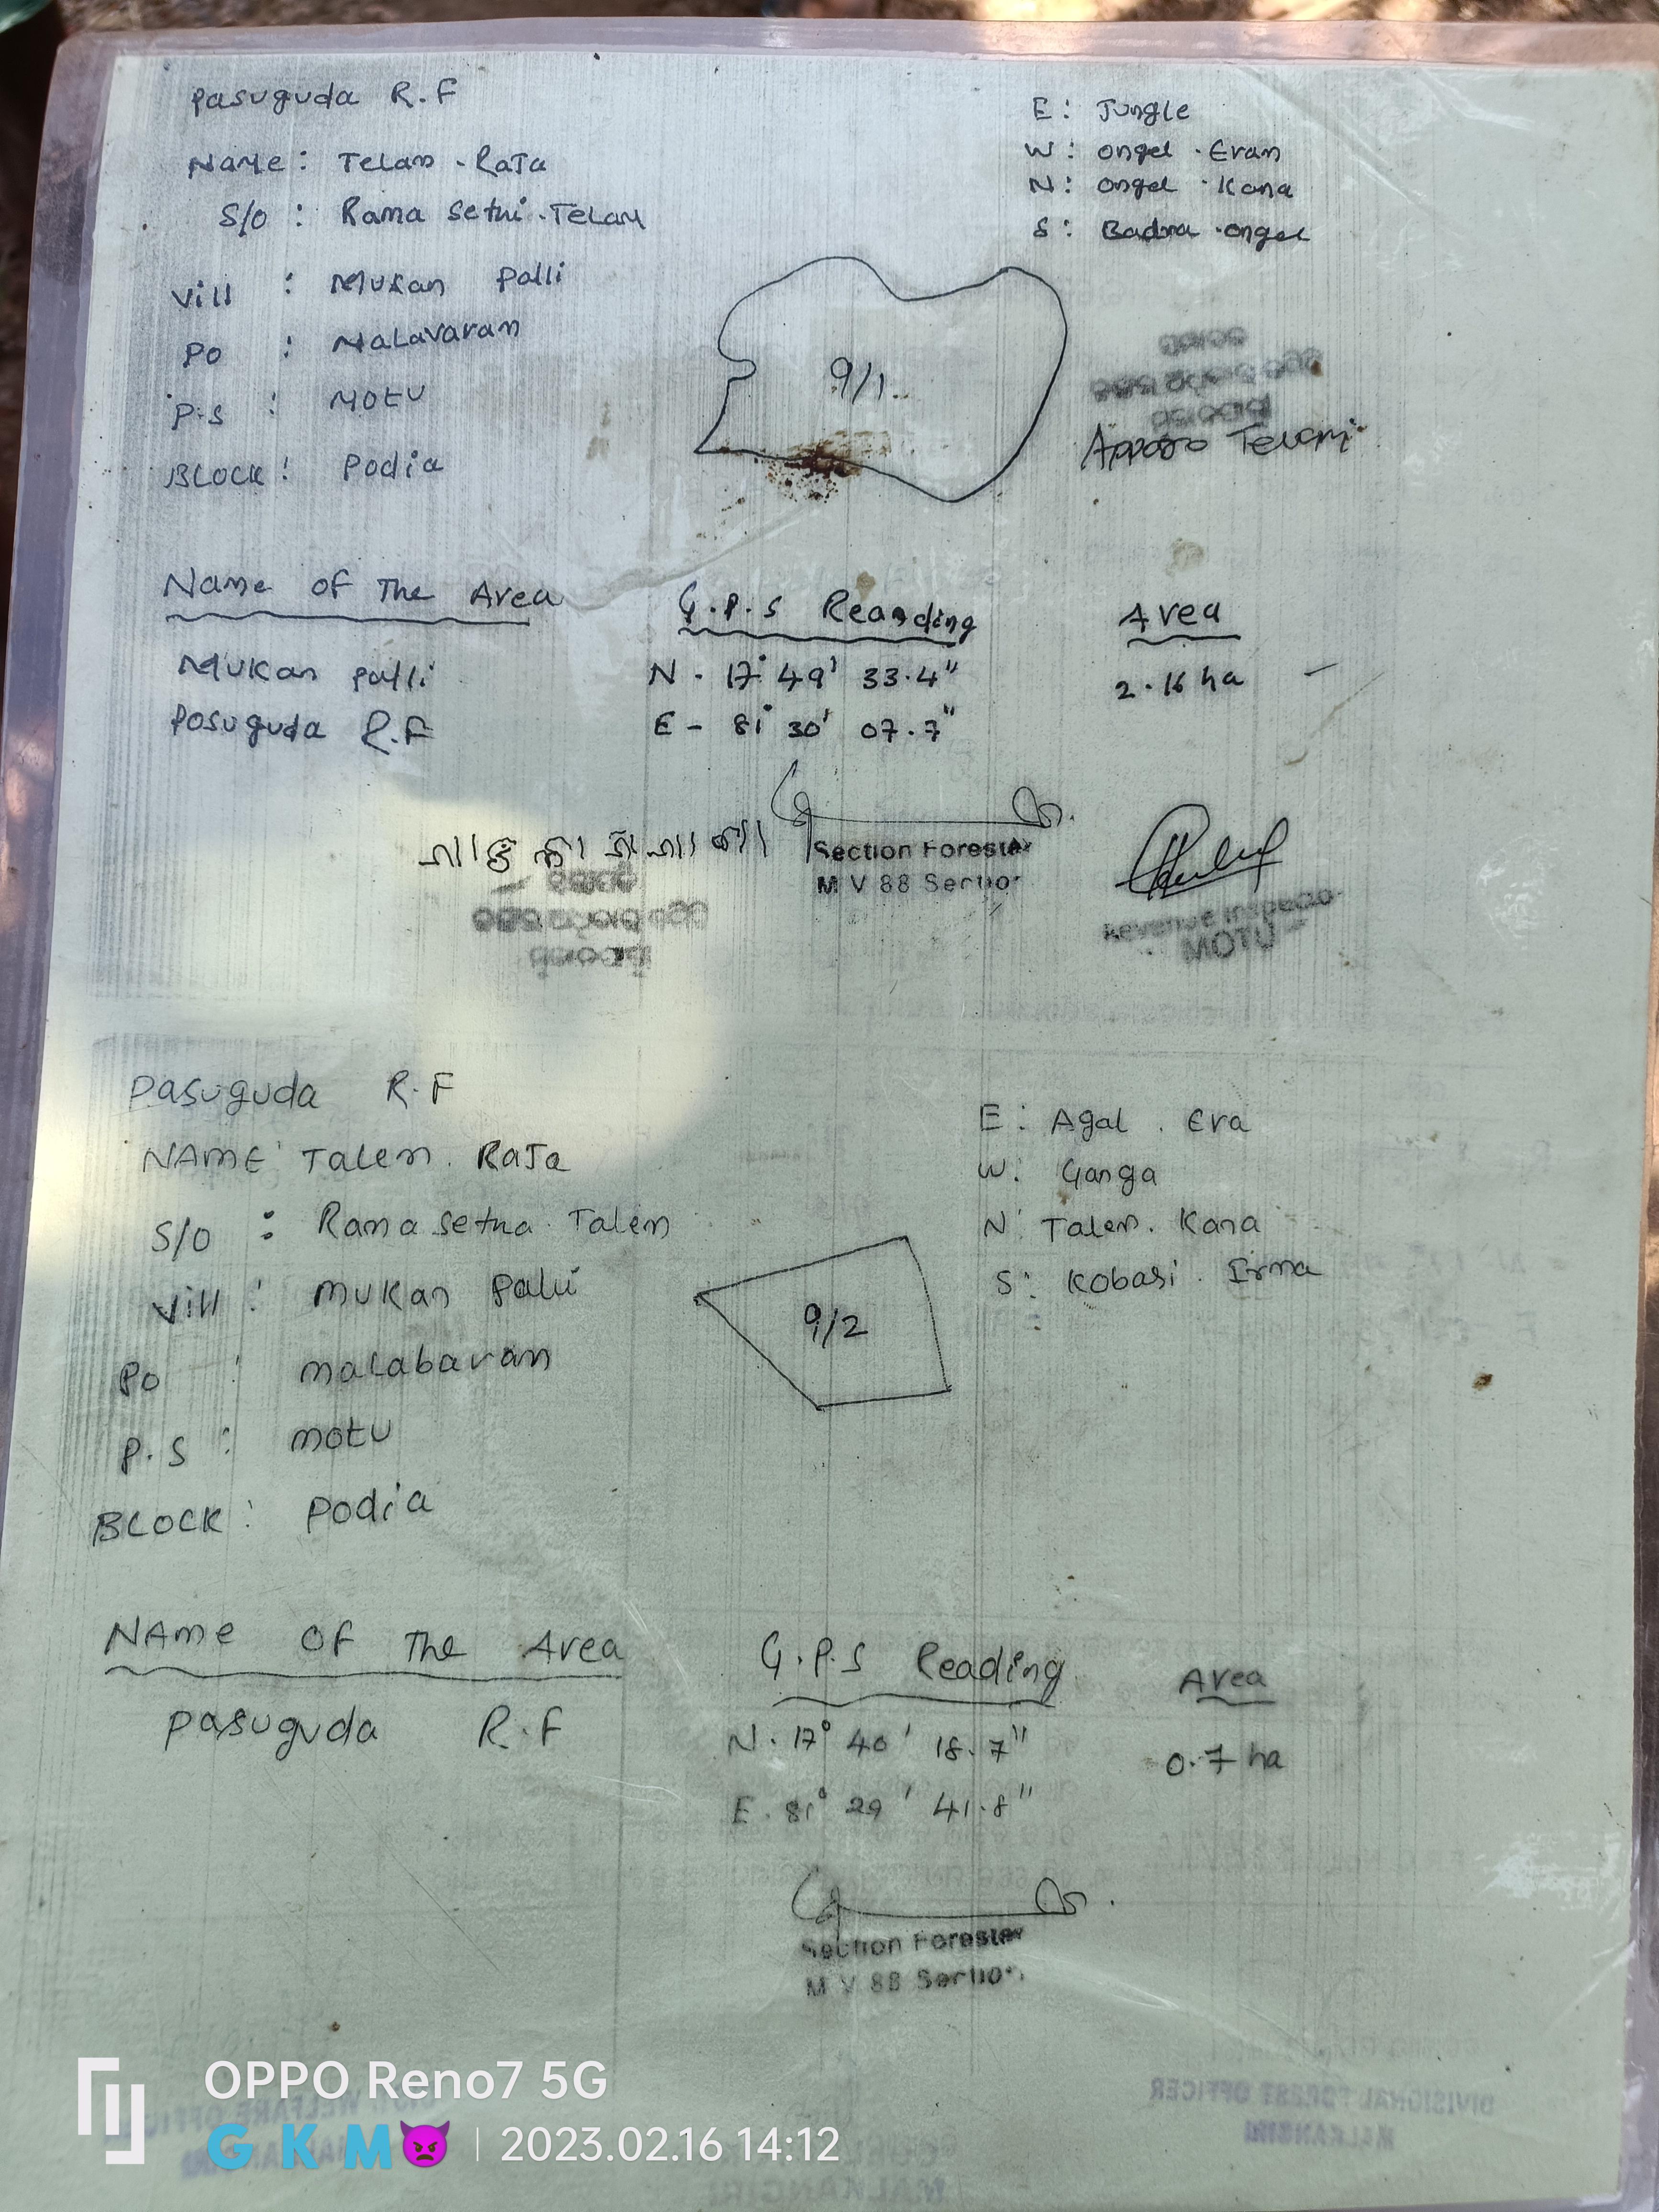 Pasuguda R.F
Name : Telam . Raja
S/O : Rama Sethi . Telam
Vill : Mukan Palli
Po : Malavaram
P.S : Motu
BLOCK : Podia
E : Jungle
W : Ongel . Eran
N : Ongel . Kana
S : Badra . Ongel
9/1
Name of The Area
G.P.S Reanding
Area
Mukan palli
N - 17° 49' 33.4"
2.16 ha
Posuguda R.F
E - 81° 30' 07.7"
Section Forester
M V 88 Section
Revenue Inspector
MOTU
Pasuguda R.F
NAME : Talem . Raja
S/O : Rama Setha . Talem
Vill : Mukan Palli
Po : malabaram
P.S : motu
BLOCK : Podia
E : Agal . Era
W : Ganga
N : Talem . Kana
S : Kobasi . Irma
9/2
NAme OF The Area
G.P.S Reading
Area
Pasuguda R.F
N . 17° 40' 18.7"
0.7 ha
E . 81° 29' 41.8"
Section Forester
M V 88 Section
DIVISIONAL FOREST OFFICER
MALKANGIRI
MALKANGIRI
OPPO Reno7 5G
G K M😈 | 2023.02.16 14:12